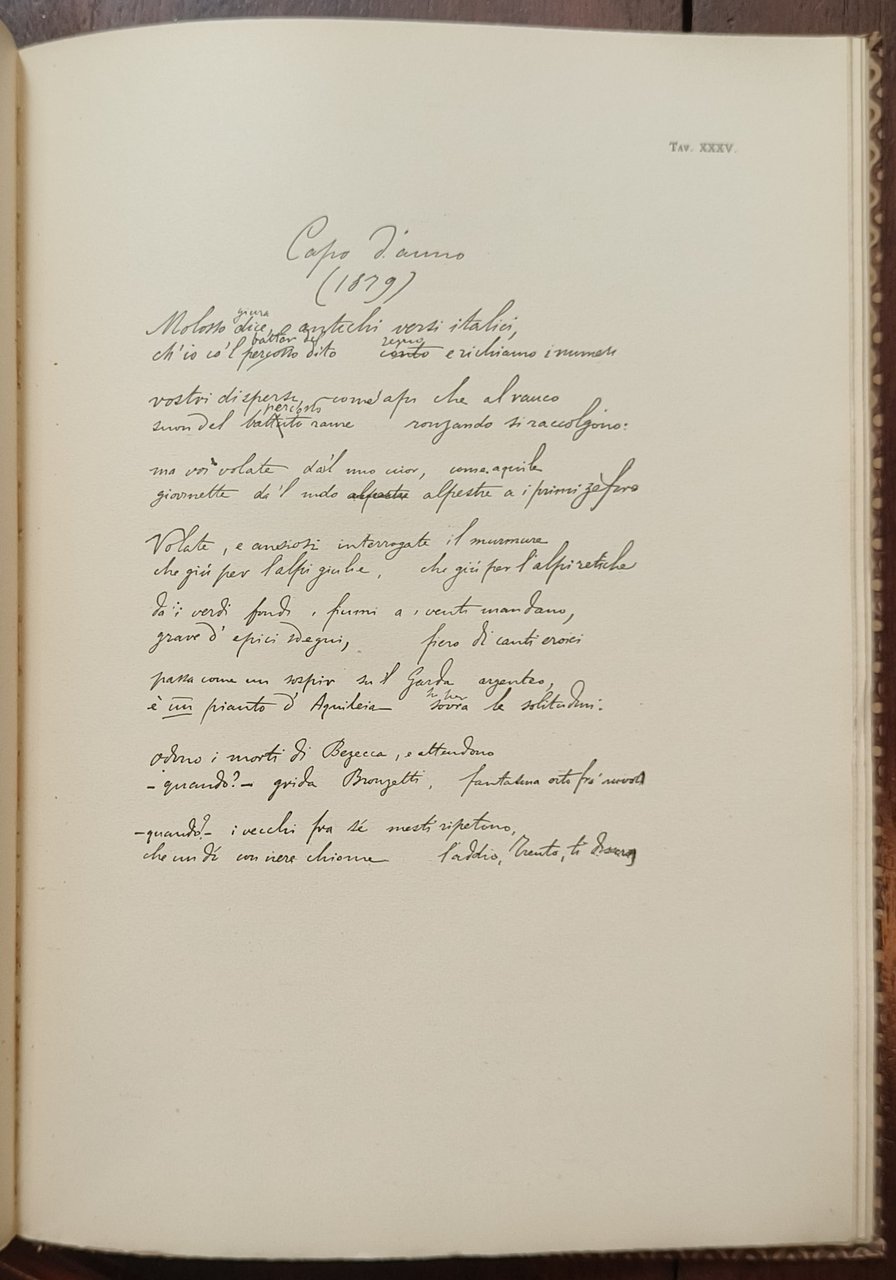 Tav. XXXV.
Capo d'anno
(1879)
giura
Molosso dice, o antichi versi italici,
batter del seguo
ch'io co'l percosso dito conto e richiamo i numeri
vostri dispersi, come api che al rauco
percosso
suon del battuto rame ronzando si raccolgono:
ma voi volate da'l mio cuor, come aquile
giovinette da'l nido alpestre alpestre a i primi zefiri
Volate, e ansiosi interrogate il murmure
che giù per l'alpi giulie, che giù per l'alpi retiche
da i verdi fondi i fiumi a i venti mandano,
grave d'epici sdegni, fiero di canti eroici
passa come un sospir su'l Garda argenteo,
su per
è un pianto d'Aquileia sovra le solitudini:
odono i morti di Bezecca, e attendono
– quando? – grida Bronzetti, fantasma erto fra' nuvoli
– quando? – i vecchi fra sé mesti ripetono,
che un dì con nere chiome l'addio, Trento, ti dissero